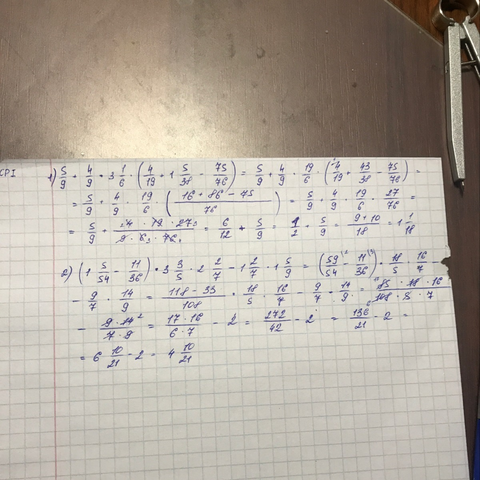 СР1
1) 5/9 + 4/9 · 3 1/6 · (4/19 + 1 5/38 - 75/76) = 5/9 + 4/9 · 19/6 · (4/19 + 43/38 - 75/76) =
= 5/9 + 4/9 · 19/6 · (16 + 86 - 75 / 76) = 5/9 + 4/9 · 19/6 · 27/76 =
= 5/9 + 4 · 19 · 27 / 9 · 6 · 76 = 6/12 + 5/9 = 1/2 + 5/9 = 9 + 10 / 18 = 1 1/18
2) (1 5/54 - 11/36) · 3 3/5 · 2 2/7 - 1 2/7 · 1 5/9 = (59/54 - 11/36) · 18/5 · 16/7 -
- 9/7 · 14/9 = 118 - 33 / 108 · 18/5 · 16/7 - 9/7 · 14/9 = 85 · 18 · 16 / 108 · 5 · 7
- 9 · 14 / 7 · 9 = 17 · 16 / 6 · 7 - 2 = 272/42 - 2 = 136/21 - 2 =
= 6 10/21 - 2 = 4 10/21